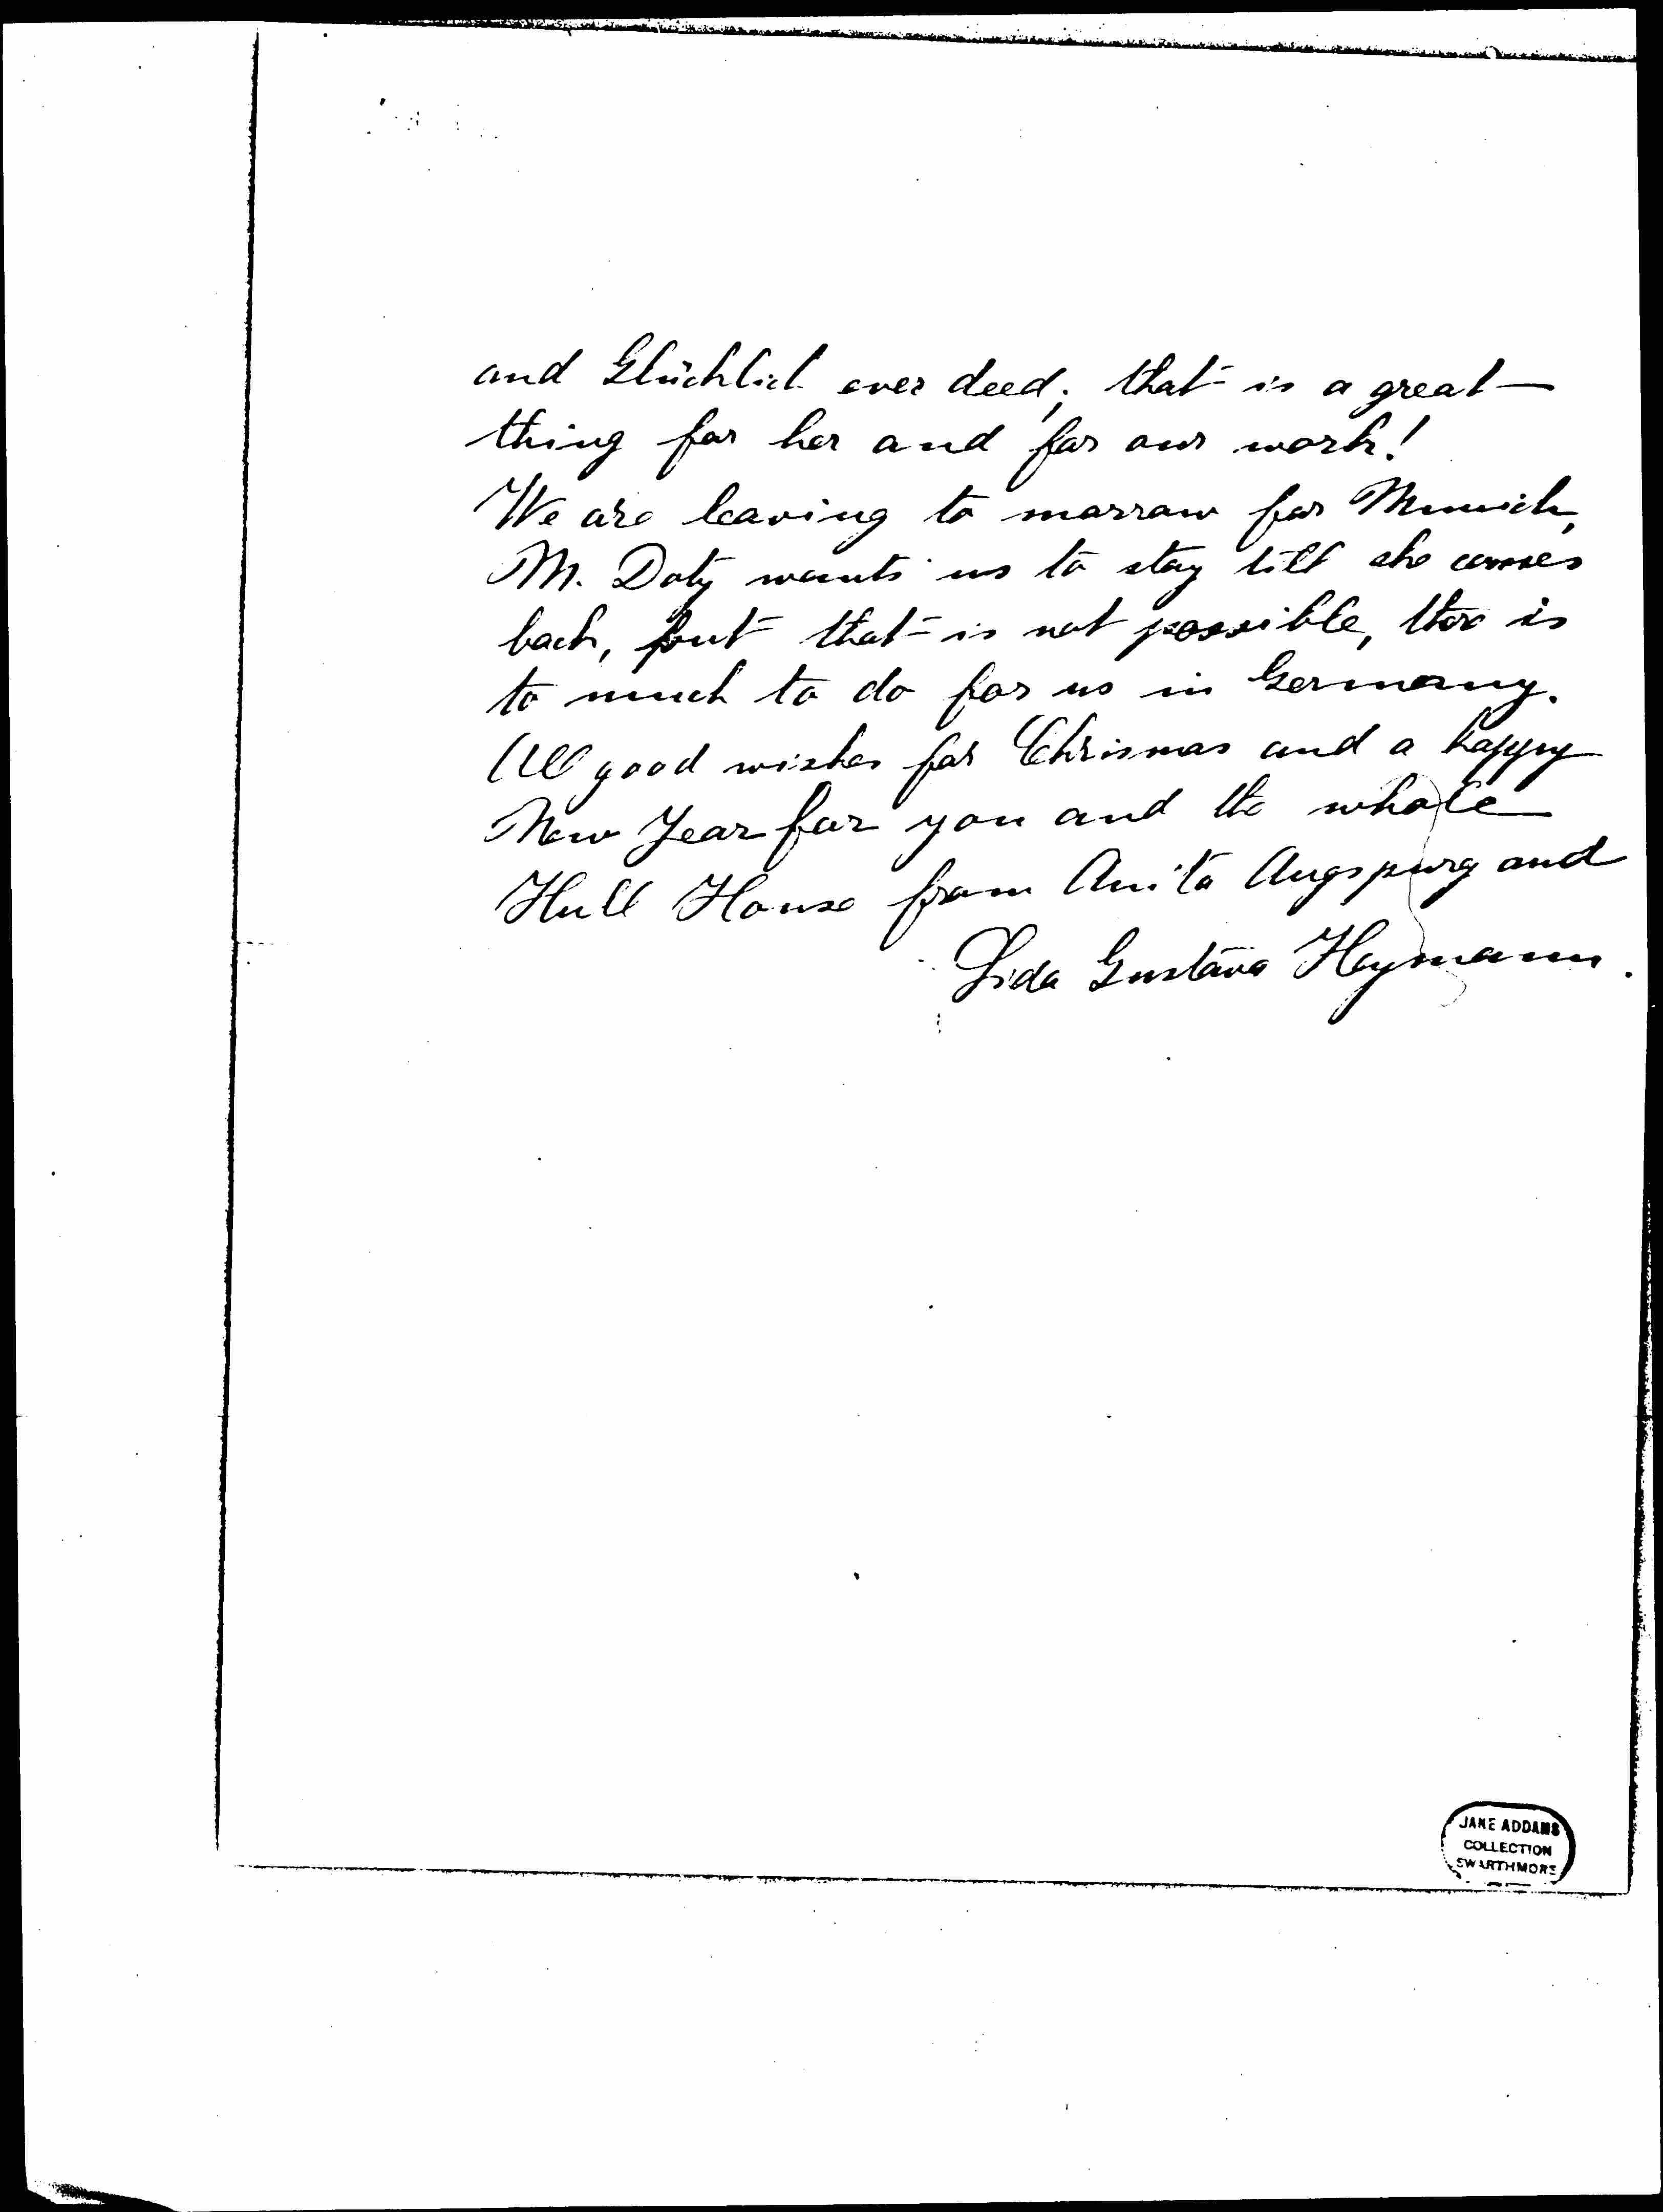 and Glücklich ever deed; that is a great
thing for her and for our work!
We are leaving to morrow for Munich,
M. Doty wants us to stay till she comes
back, but that is not possible, ther is
to much to do for us in Germany.
All good wishes for Chrismas and a happy
New Year for you and the whole
Hull House from Anita Augspurg and
Lida Gustava Heymann.
JANE ADDAMS
COLLECTION
SWARTHMORE